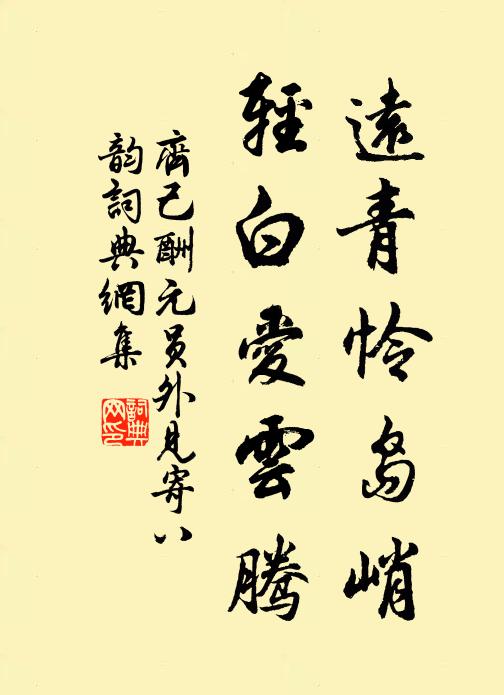 遠青怜島峭
輕白愛雲騰
齊己酬元員外見寄八
韵詞典網集
詞典
网印